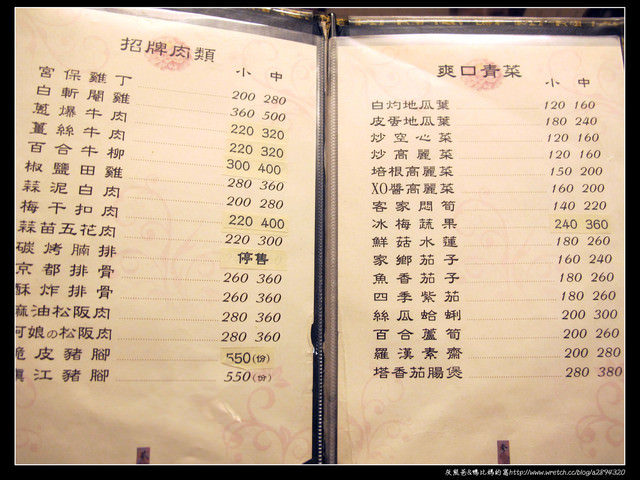 招牌肉類
小 中
宮保雞丁 200 280
白斬閹雞 360 500
蔥爆牛肉 220 320
薑絲牛肉 220 320
百合牛柳 300 400
椒鹽田雞 280 360
蒜泥白肉 200 280
梅干扣肉 220 400
蒜苗五花肉 220 300
碳烤腩排 停售
京都排骨 260 360
酥炸排骨 260 360
麻油松阪肉 280 360
阿娘の松阪肉 280 360
脆皮豬腳 550(份)
鎮江豬腳 550(份)
爽口青菜
小 中
白灼地瓜葉 120 160
皮蛋地瓜葉 180 240
炒空心菜 120 160
炒高麗菜 120 160
培根高麗菜 150 200
XO醬高麗菜 160 200
客家悶筍 140 220
冰梅蔬果 240 360
鮮菇水蓮 180 260
家鄉茄子 160 240
魚香茄子 180 260
四季紫茄 180 260
絲瓜蛤蜊 200 300
百合蘆筍 200 260
羅漢素齋 200 280
塔香茄腸煲 280 380
灰熊爸&鴨比媽的窩http://www.wretch.cc/blog/a2894320